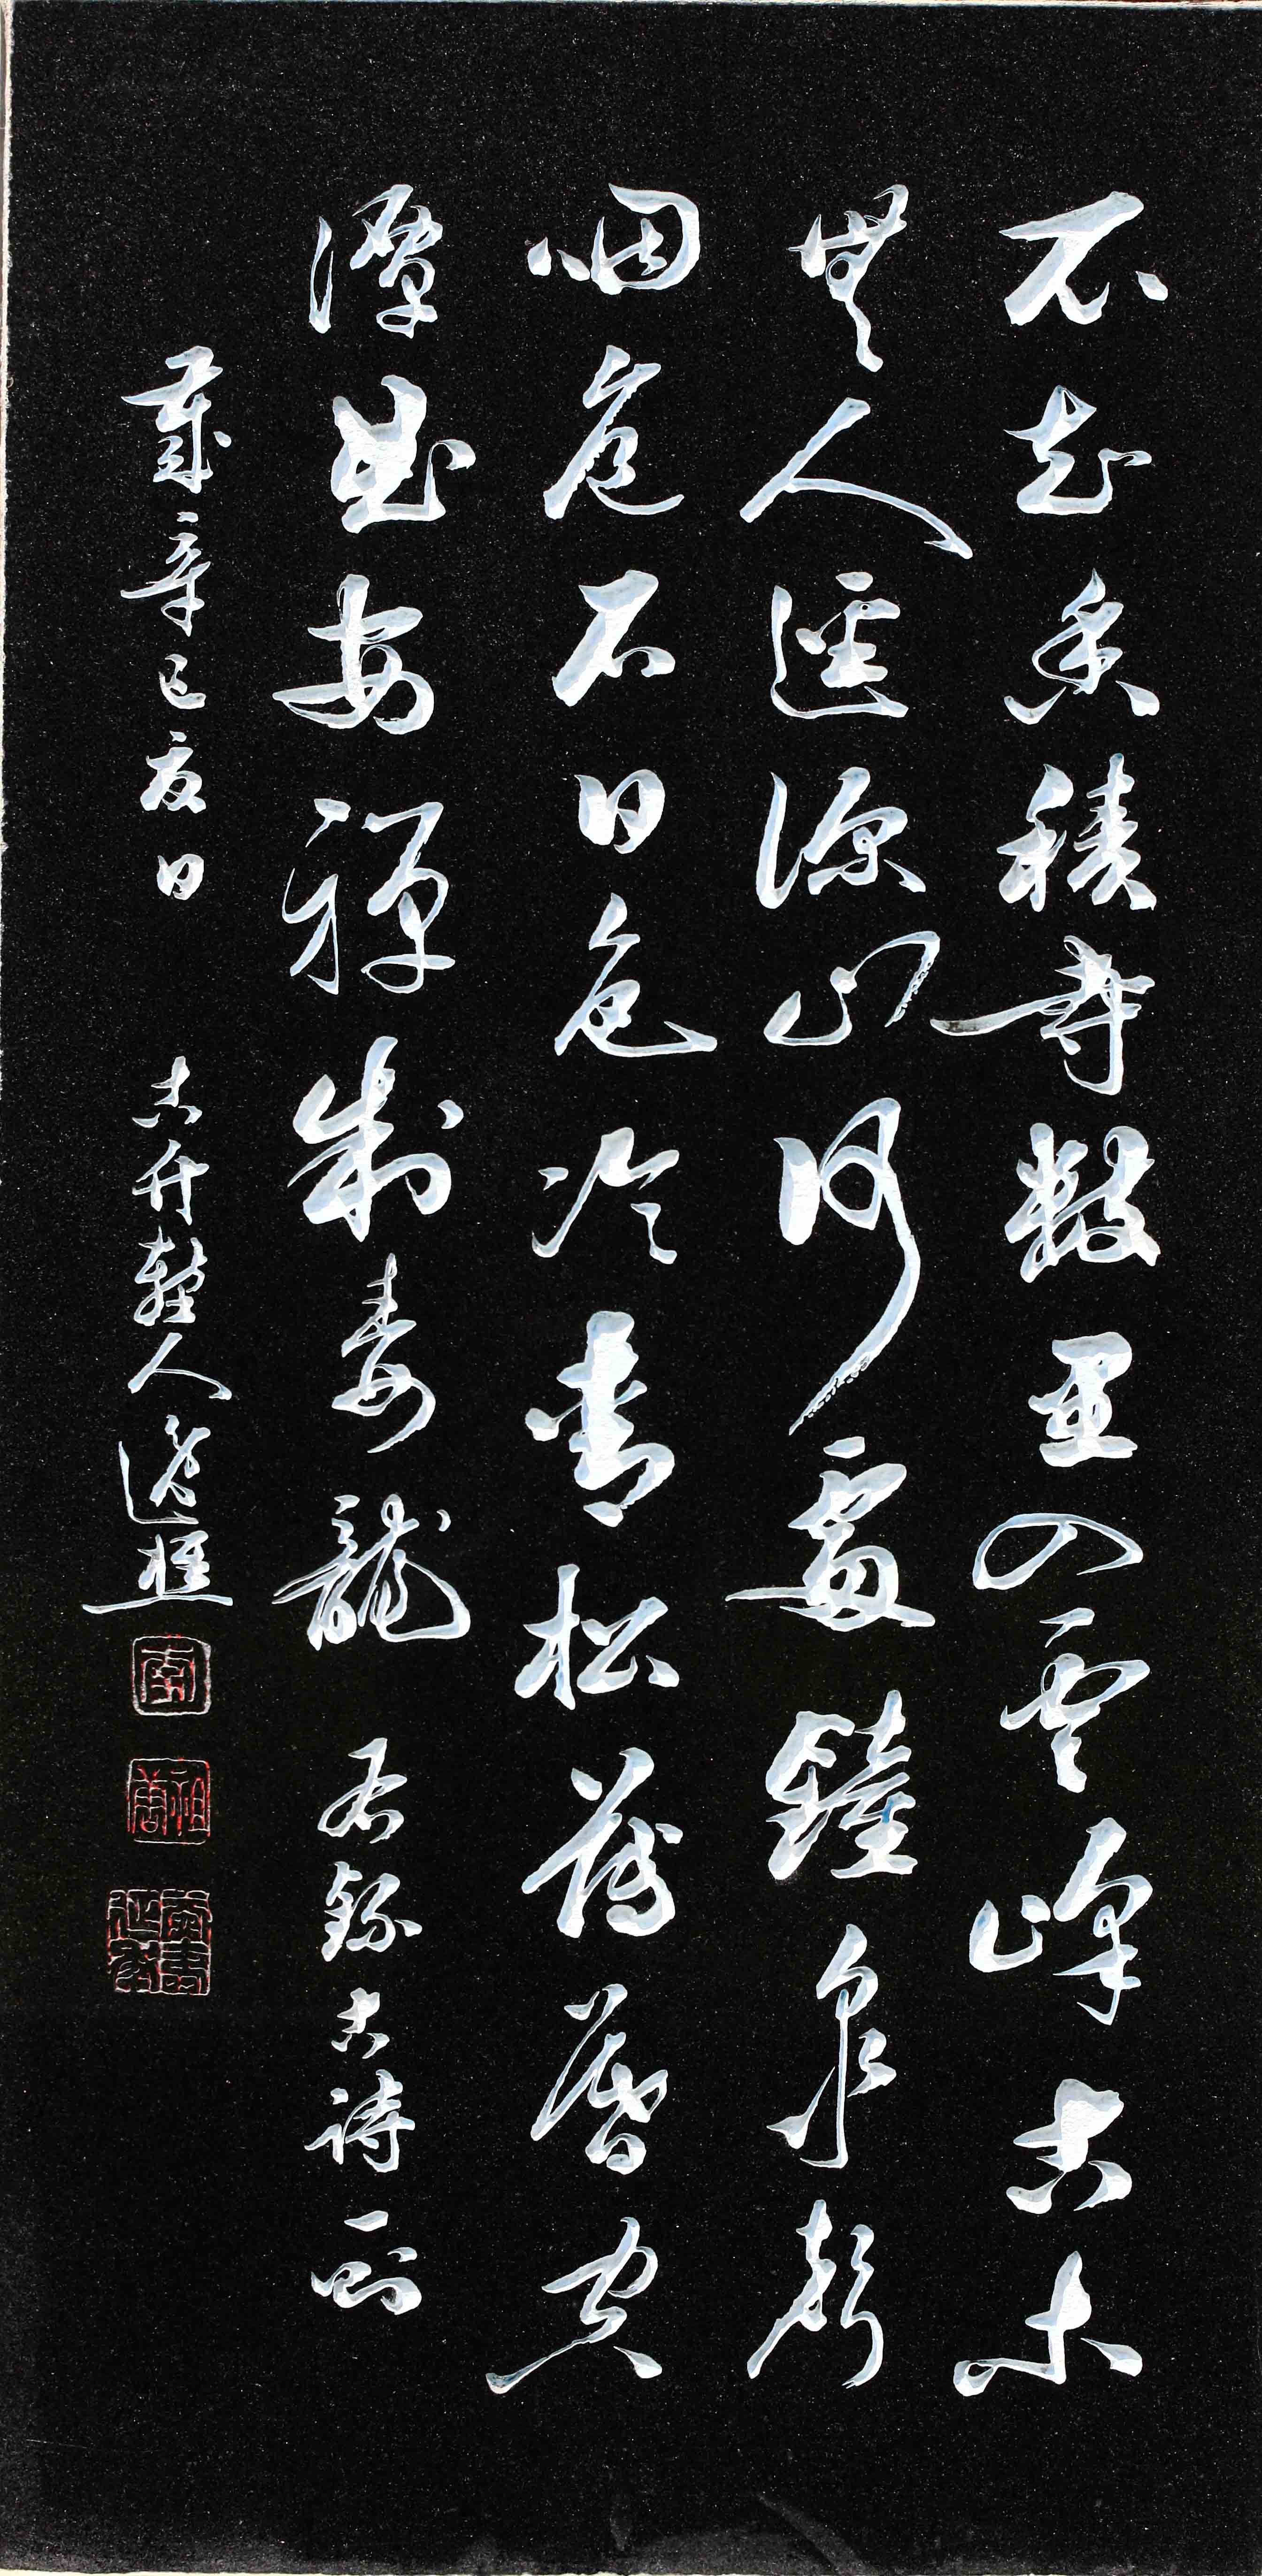 不知香積寺數里入雲峰古木
無人逕深山何處鐘泉聲
咽危石日色冷青松薄暮空
潭曲安禪制毒龍 右錄古詩一則
歲辛巳夏日 古井軒人